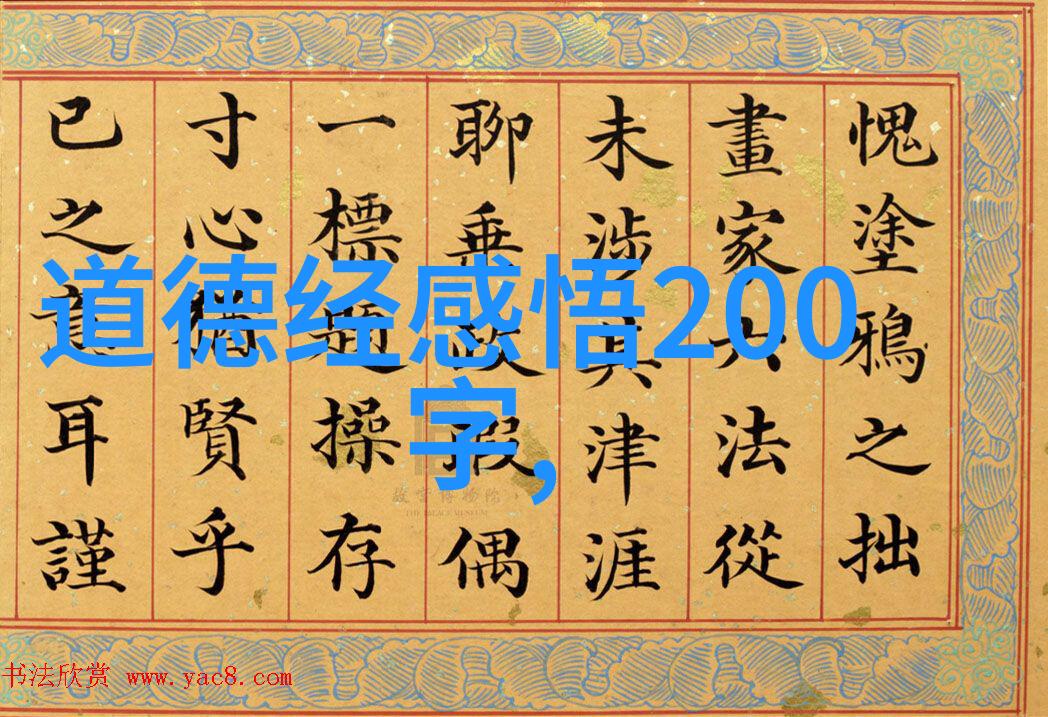 道德经感悟200
字,
愧塗鴉之拙
畫家六法從
未涉其津涯
聊乗政暇偶
一標題操存
寸心猶賢乎
已之意耳謹
故宮博物院
THE PALACE MUSEUM
书法欣赏 www.yac8.com